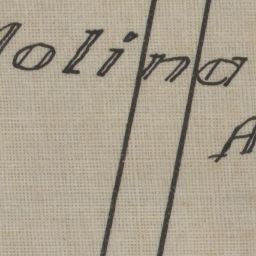 Molina
A